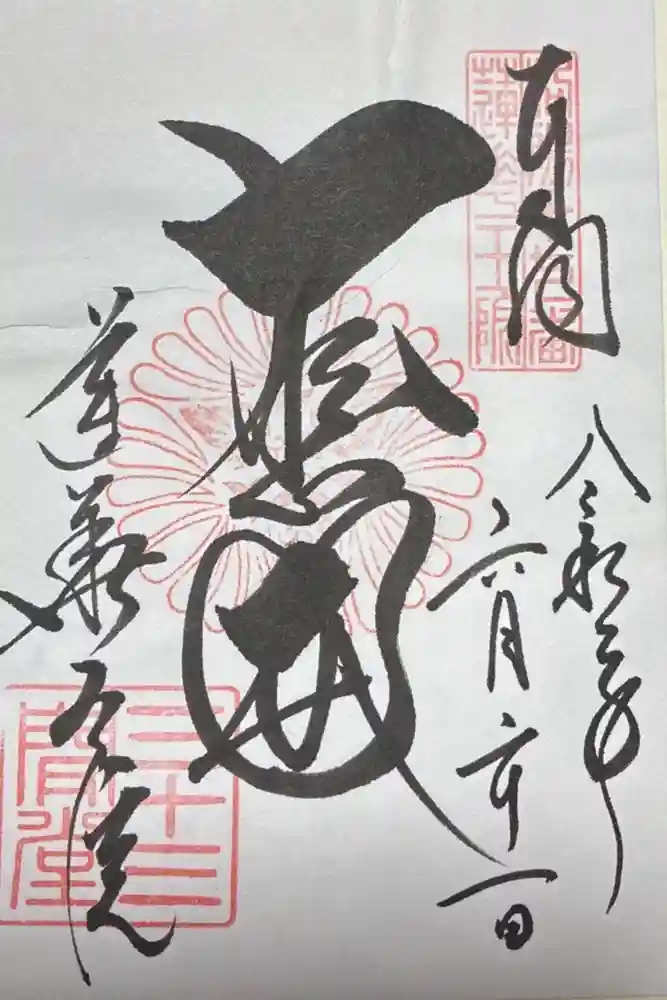 奉拝
令和三年
六月二十一日
大悲閣
蓮華王院
蓮華王院
三十三
間堂